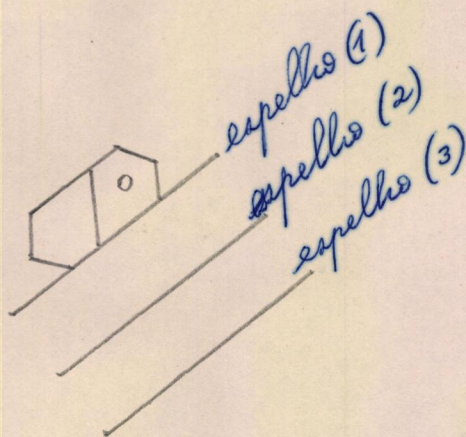 espelho (1)
espelho (2)
espelho (3)